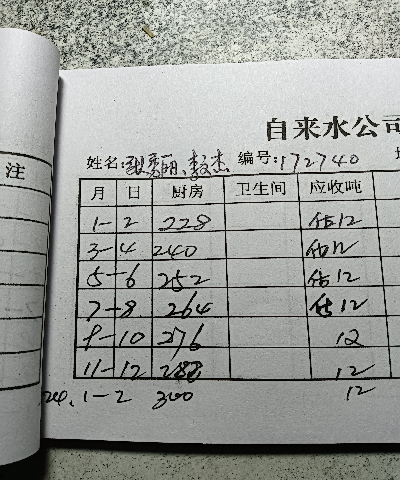 注
自来水公司
姓名: 张秀丽、李文杰 编号: 172740
月 日 厨房 卫生间 应收吨
1-2 228 估12
3-4 240 估12
5-6 252 估12
7-8 264 估12
9-10 276 12
11-12 288 12
24, 1-2 300 12